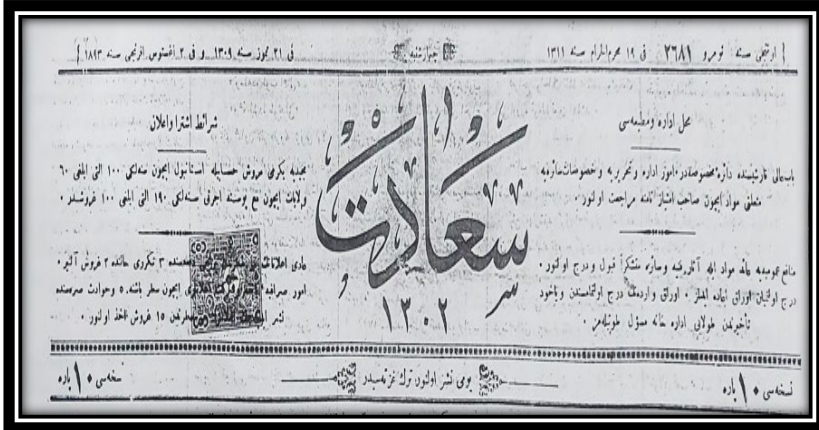 نومرو ٢٦٨١ فى ١٩ محرم الحرام سنه ١٣١١
چهارشنبه
فى ٢١ تموز سنه ١٣٠٩ و فى ٢ اغستوس افرنجى سنه ١٨٩٣
محل اداره ومطبعه‌سى
باب‌عالى قارشیسنده دائرهٔ مخصوصه‌در امور اداره وتحریریه وخصوصات سائره‌یه
متعلق مواد ایچون صاحب امتیاز نامنه مراجعت اولنور ·
منافع عمومیه‌یه عائد مواد ایله آثار فنیه وسائره متشکراً قبول ودرج اولنور ·
درج اولنمیان اوراق اعاده ایدلمز · اوراق وارده‌نك درج اولنمامسندن ویاخود
تأخیرندن طولایى اداره خانه مسئول طوتیله‌مز ·
سعادت
١٣٠٢
شرائط اشترا واعلان
مجیدیه یكرمى غروش حسابیله استانبول ایچون سنه‌لكى ١٠٠ التى ایلغى ٦٠
ولایات ایچون مع پوسته اجرتى سنه‌لكى ١٩٠ التى ایلغى ١٠٠ غروشدر ·
عادى اعلاناتك ٣ تكررى حالنده ٢ غروش آلنیر ·
امور صرافیه ایچون سطر باشنه ٥ وحوادث صره‌سنده
نشر ١٥ غروش اخذ اولنور ·
نسخه‌سى ١٠ پاره
یومى نشر اولنور ترك غزته‌سیدر
نسخه‌سى ١٠ پاره